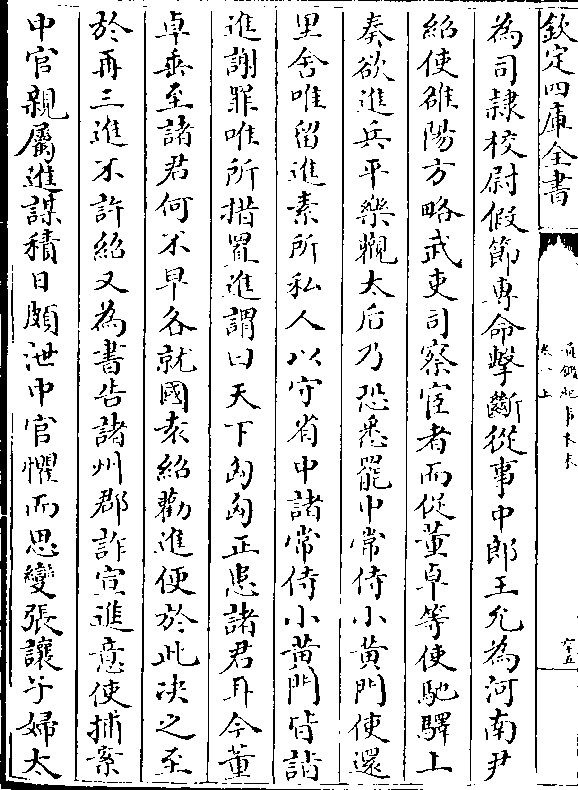 欽定四庫全書
通鑑紀事本末
卷八上
六十五
為司隸校尉假節專命擊斷從事中郎王允為河南尹
紹使雒陽方略武吏司察宦者而促董卓等使馳驛上
奏欲進兵平樂觀太后乃恐悉罷中常侍小黃門使還
里舍唯留進素所私人以守省中諸常侍小黃門皆詣
進謝罪唯所措置進謂曰天下匈匈正患諸君耳今董
卓垂至諸君何不早各就國袁紹勸進便於此決之至
於再三進不許紹又為書告諸州郡詐宣進意使捕案
中官親屬進謀積日頗泄中官懼而思變張讓子婦太